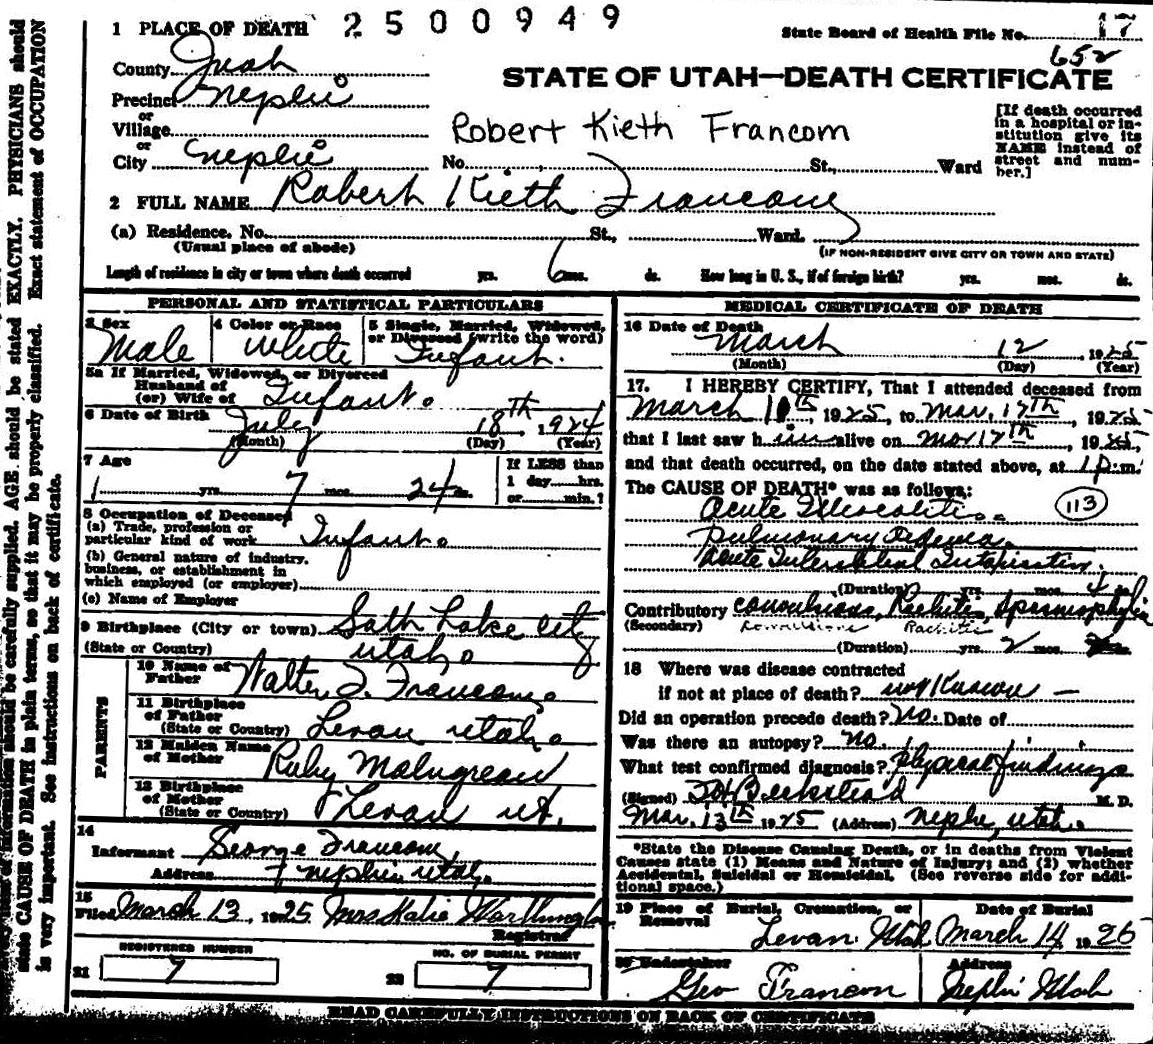 1 PLACE OF DEATH 2500949
State Board of Health File No. 17
652
County Juab
STATE OF UTAH—DEATH CERTIFICATE
Precinct Nephi
or
Village
or
City Nephi No. St., Ward
Robert Kieth Francom
[If death occurred
in a hospital or in-
stitution give its
NAME instead of
street and num-
ber.]
2 FULL NAME Robert Kieth Francom
(a) Residence. No. St., Ward.
(Usual place of abode)
(IF NON-RESIDENT GIVE CITY OR TOWN AND STATE)
Length of residence in city or town where death occurred yrs. 6 mos. ds. How long in U. S., if of foreign birth? yrs. mos. ds.
PERSONAL AND STATISTICAL PARTICULARS
3 Sex
Male
4 Color or Race
White
5 Single, Married, Widowed,
or Divorced (write the word)
Infant.
5a If Married, Widowed, or Divorced
Husband of
(or) Wife of Infant.
6 Date of Birth July 18th, 1924
(Month) (Day) (Year)
7 Age
yrs. 7 mos. 24 ds.
If LESS than
1 day hrs.
or min.?
8 Occupation of Deceased
(a) Trade, profession or
particular kind of work Infant.
(b) General nature of industry,
business, or establishment in
which employed (or employer)
(c) Name of Employer
9 Birthplace (City or town) Salt Lake City
(State or Country) Utah.
PARENTS
10 Name of
Father Walter J. Francom.
11 Birthplace
of Father
(State or Country) Levan Utah.
12 Maiden Name
of Mother Ruby Malmgrean
13 Birthplace
of Mother
(State or Country) Levan ut.
14
Informant George Francom,
Address Nephi Utah.
15
Filed March 13, 1925 Mrs Katie Worthington
Registrar
REGISTERED NUMBER
21 7
NO. OF BURIAL PERMIT
22 7
MEDICAL CERTIFICATE OF DEATH
16 Date of Death
March 12, 1925
(Month) (Day) (Year)
17. I HEREBY CERTIFY, That I attended deceased from
March 10th, 1925, to Mar, 12th, 1925
that I last saw him alive on Mar 12th, 1925,
and that death occurred, on the date stated above, at 1 p.m.
The CAUSE OF DEATH* was as follows:
Acute Ileocolitis. 113
Pulmonary Edema.
Acute Intestinal Intoxication.
(Duration) yrs. mos. 4 ds.
Contributory convulsions, Rachitis, Spasmophylia
(Secondary) convulsions Rachitis
(Duration) yrs. 2 mos. ds.
18 Where was disease contracted
if not at place of death? not known —
Did an operation precede death? No. Date of
Was there an autopsy? no.
What test confirmed diagnosis? physical findings
(Signed) Beckstead M. D.
Mar. 13th 1925 (Address) Nephi, Utah.
*State the Disease Causing Death, or in deaths from Violent
Causes state (1) Means and Nature of Injury; and (2) whether
Accidental, Suicidal or Homicidal. (See reverse side for addi-
tional space.)
19 Place of Burial, Cremation, or
Removal
Levan Utah
Date of Burial
March 14 1925
20 Undertaker
Geo Francom
Address
Nephi Utah
READ CAREFULLY INSTRUCTIONS ON BACK OF CERTIFICATE
information should be carefully supplied. AGE should be stated EXACTLY. PHYSICIANS should
state CAUSE OF DEATH in plain terms, so that it may be properly classified. Exact statement of OCCUPATION
is very important. See instructions on back of certificate.